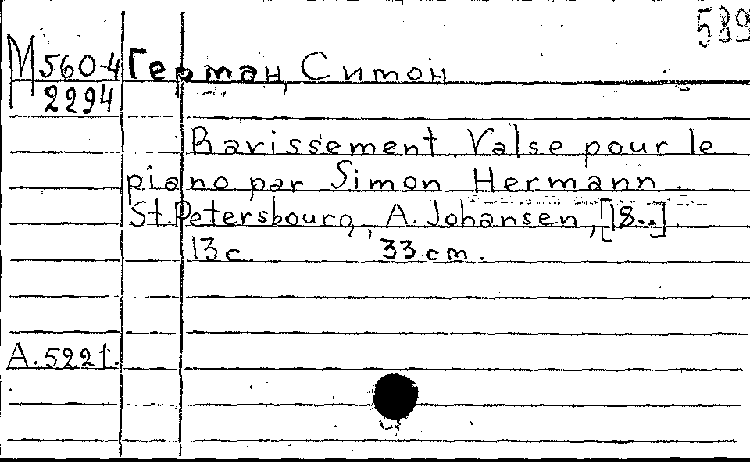 589
M 560-4 Герман, Симон
2294
Ravissement. Valse pour le
piano par Simon Hermann.
St. Petersbourg, A. Johansen, [18..].
13 c. 33 cm.
A.5221.